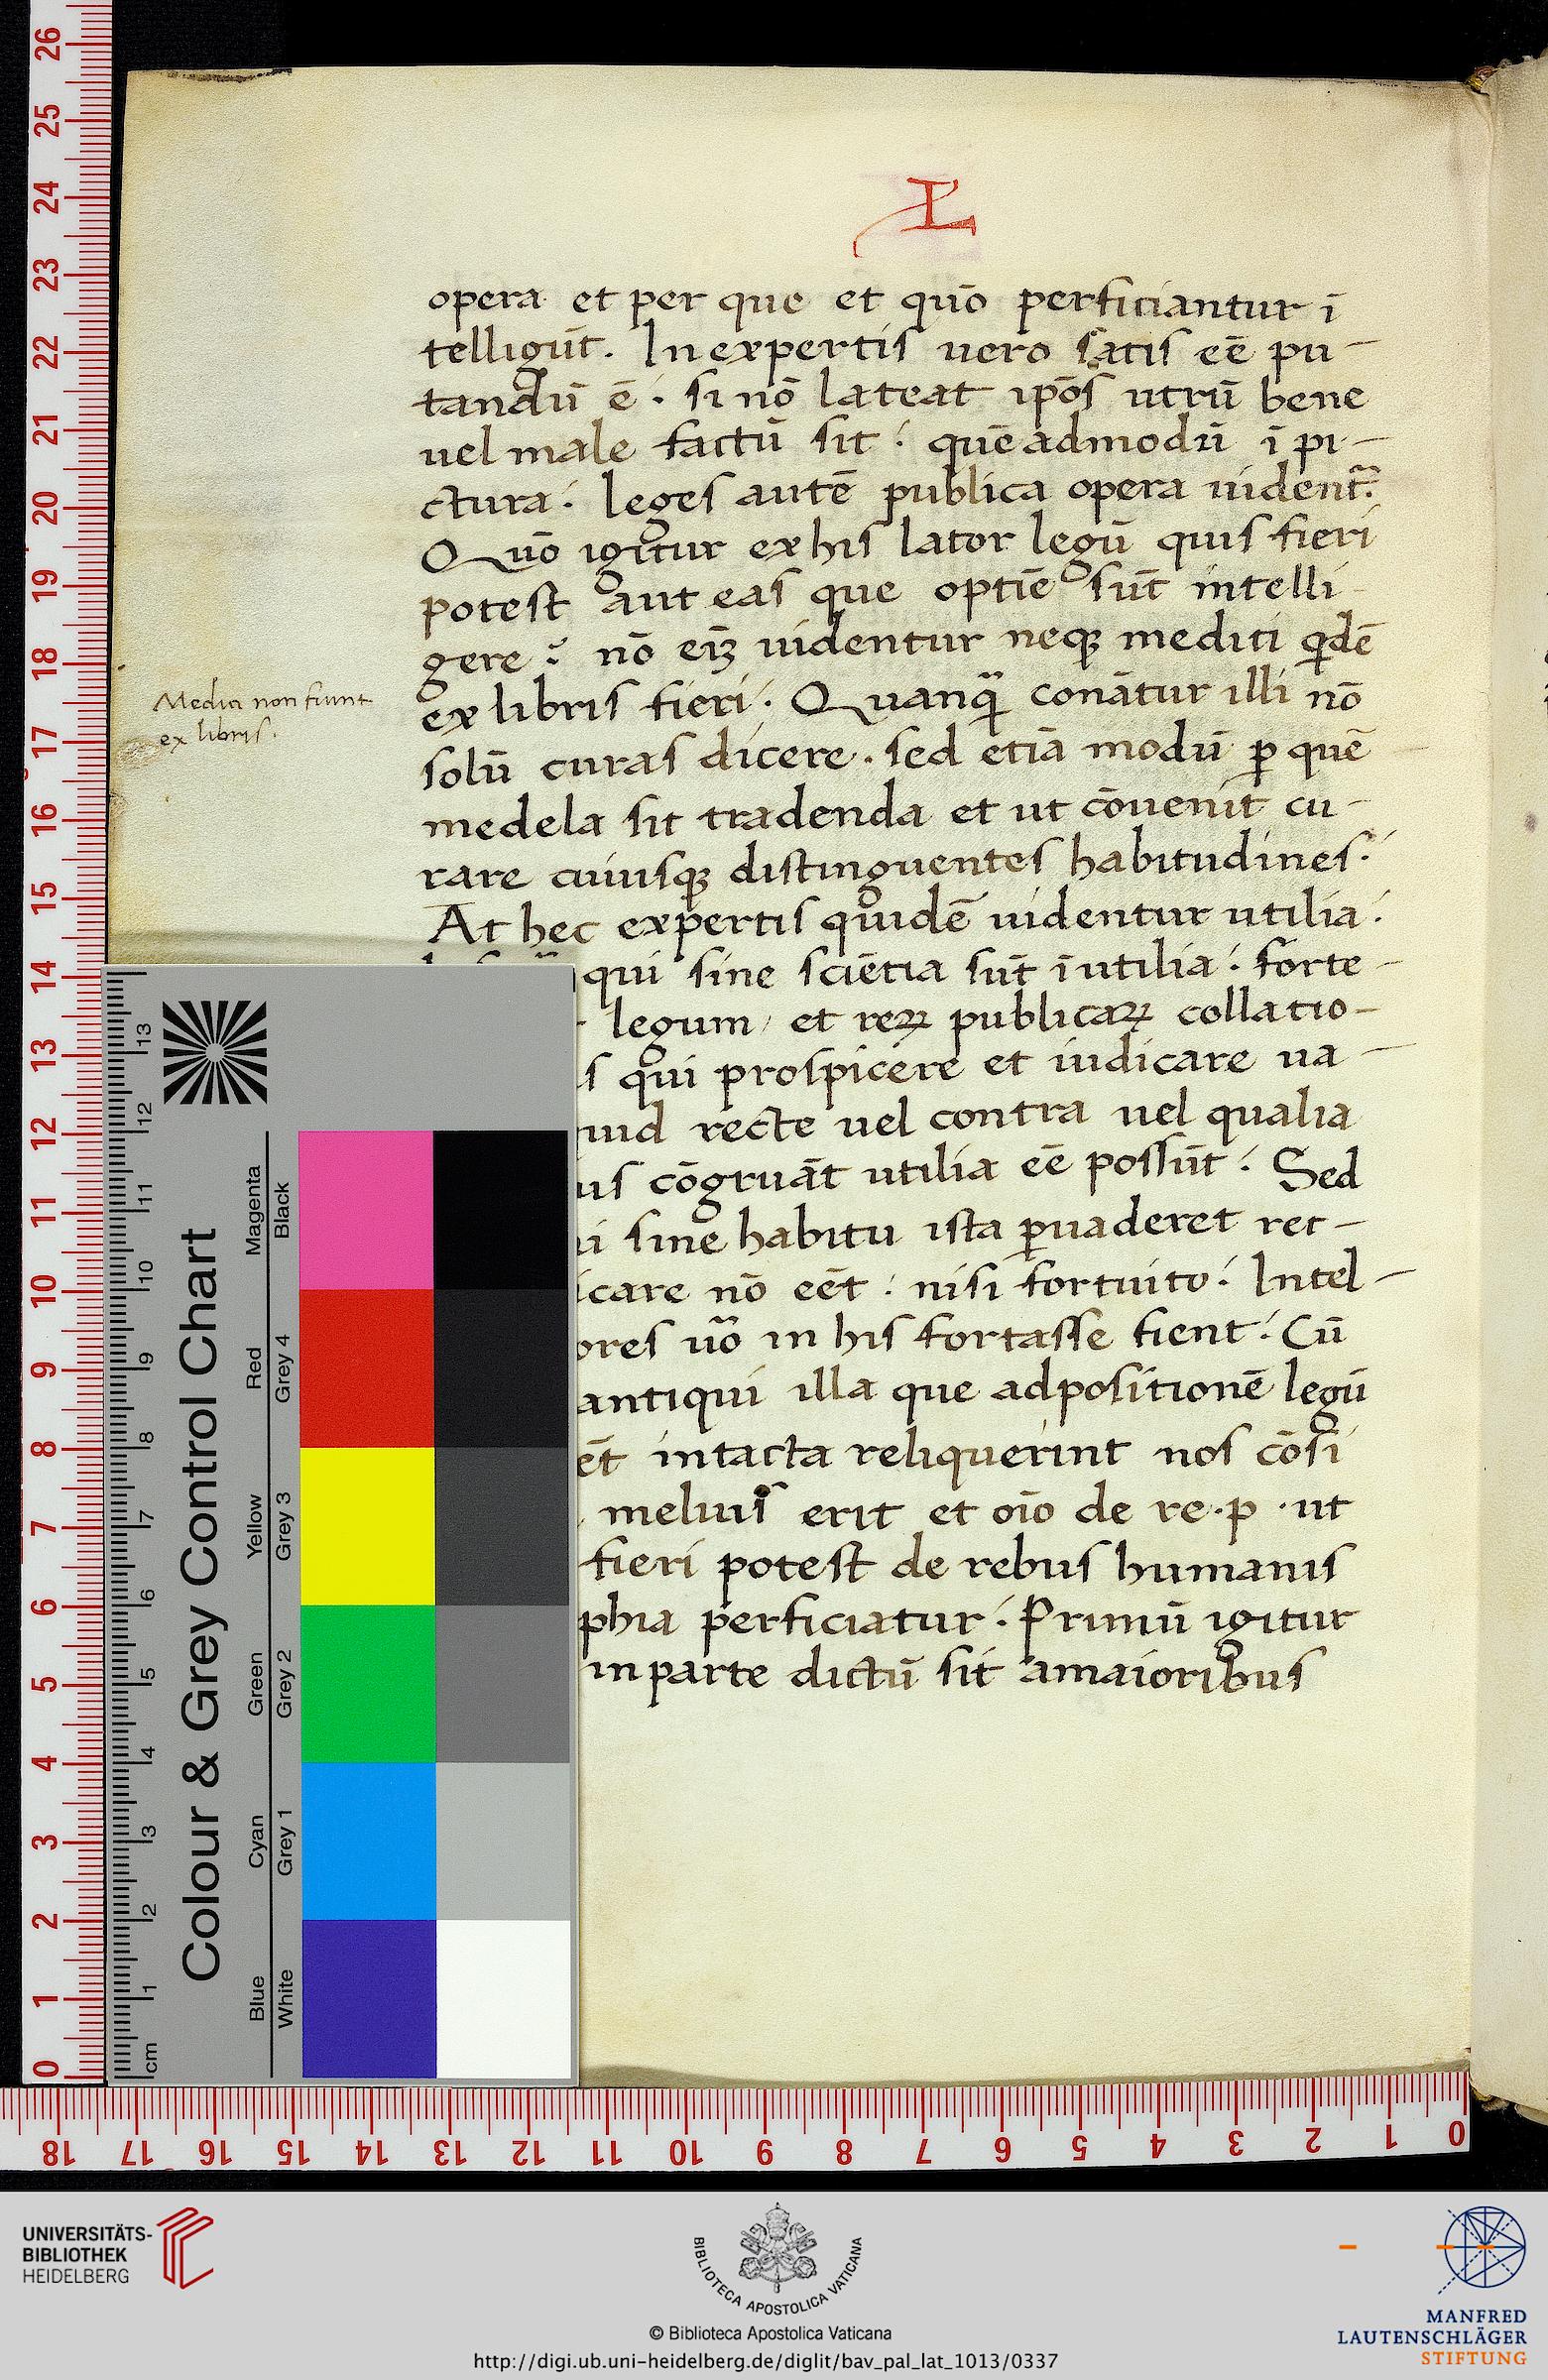 L
opera et per que et quō perficiantur ī
telligūt. Inexpertis uero satis eē pu-
tandū ē. si nō lateat ipōs utrū bene
uel male factū sit: quēadmodū ī pi-
ctura: leges autē publica opera uident.
Quō igitur ex his lator legū quis fieri
potest aut eas que optīe sūt intelli-
gere? nō eiȝ uidentur neqȝ mediti qdē
ex libris fieri. Quanq conātur illi nō
Media non fiunt
ex libris.
solū curas dicere. sed etiā modū ꝑ quē
medela sit tradenda et ut cōuenit cu-
rare cuiusqȝ distinguentes habitudines.
At hec expertis quidē uidentur utilia.
qui sine sciētia sūt īutilia: forte-
legum, et reꝝ publicaꝝ collatio-
s qui prospicere et iudicare ua-
uid recte uel contra uel qualia
us cōgruāt utilia eē possūt. Sed
i sine habitu ista ꝑuaderet rec-
icare nō eēt: nisi fortuito: Intel-
ores uo in his fortasse fient: Cū
antiqui illa que adpositionē legū
ēt intacta reliquerint nos cōsi
melius erit et oīo de re.p. ut
fieri potest de rebus humanis
phia perficiatur. Primū igitur
in parte dictū sit amaioribus
Colour & Grey Control Chart
Magenta Black
Red Grey 4
Yellow Grey 3
Green Grey 2
Cyan Grey 1
Blue White
cm 1 2 3 4 5 6 7 8 9 10 11 12 13
0 1 2 3 4 5 6 7 8 9 10 11 12 13 14 15 16 17 18 19 20 21 22 23 24 25 26
18 17 16 15 14 13 12 11 10 9 8 7 6 5 4 3 2 1 0
UNIVERSITÄTS-
BIBLIOTHEK
HEIDELBERG
BIBLIOTECA APOSTOLICA VATICANA
© Biblioteca Apostolica Vaticana
http://digi.ub.uni-heidelberg.de/diglit/bav_pal_lat_1013/0337
MANFRED
LAUTENSCHLÄGER
STIFTUNG